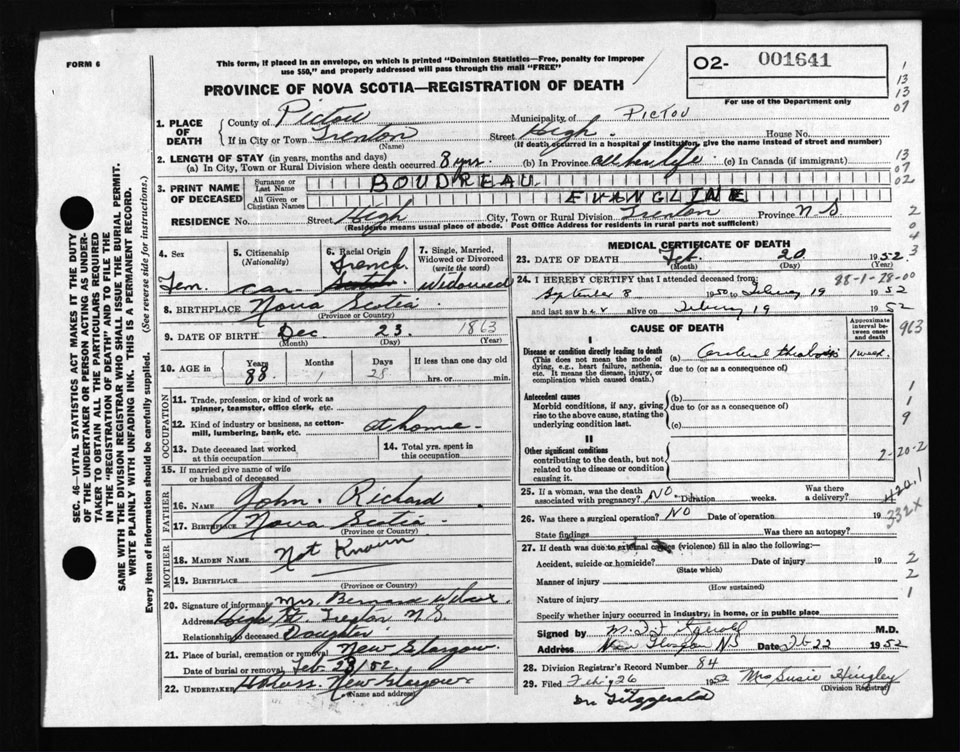 FORM 6
This form, if placed in an envelope, on which is printed "Dominion Statistics—Free, penalty for improper
use $50," and properly addressed will pass through the mail "FREE"
O2- 001641
For use of the Department only
PROVINCE OF NOVA SCOTIA—REGISTRATION OF DEATH
1. PLACE OF DEATH
County of Pictou Municipality of PICTOU
If in City or Town Trenton Street High House No.
(Name) (If death occurred in a hospital or institution, give the name instead of street and number)
2. LENGTH OF STAY (in years, months and days)
(a) In City, Town or Rural Division where death occurred 8 yrs. (b) In Province all her life (c) In Canada (if immigrant)
3. PRINT NAME OF DECEASED
Surname or Last Name BOUDREAU
All Given or Christian Names EVANGLINE
RESIDENCE No. Street High City, Town or Rural Division Trenton Province N S
(Residence means usual place of abode. Post Office Address for residents in rural parts not sufficient)
4. Sex Fem.
5. Citizenship (Nationality) Can
6. Racial Origin French
7. Single, Married, Widowed or Divorced (write the word) Widowed
8. BIRTHPLACE Nova Scotia
(Province or Country)
9. DATE OF BIRTH Dec 23 1863
(Month) (Day) (Year)
10. AGE in Years 88 Months 1 Days 28 If less than one day old
hrs. or min.
OCCUPATION
11. Trade, profession, or kind of work as
spinner, teamster, office clerk, etc.
12. Kind of industry or business, as cotton-
mill, lumbering, bank, etc. at home
13. Date deceased last worked at this occupation
14. Total yrs. spent in this occupation
15. If married give name of wife
or husband of deceased
FATHER
16. NAME John Richard
17. BIRTHPLACE Nova Scotia
(Province or Country)
MOTHER
18. MAIDEN NAME Not Known
19. BIRTHPLACE
(Province or Country)
20. Signature of informant Mrs.
Address High St. Trenton N.S.
Relationship to deceased Daughter
21. Place of burial, cremation or removal New Glasgow
Date of burial or removal Feb 23/52
22. UNDERTAKER New Glasgow
(Name and address)
MEDICAL CERTIFICATE OF DEATH
23. DATE OF DEATH Feb. 20 1952
(Month) (Day) (Year)
24. I HEREBY CERTIFY that I attended deceased from: 88-1-28-00
September 8 1950 to 19 1952
and last saw her alive on 19 1952
CAUSE OF DEATH
Approximate interval between onset and death
I
Disease or condition directly leading to death (a) Cerebral thrombosis 1 week
(This does not mean the mode of dying, e.g., heart failure, asthenia, etc. It means the disease, injury, or complication which caused death.)
due to (or as a consequence of)
Antecedent causes
Morbid conditions, if any, giving rise to the above cause, stating the underlying condition last.
(b)
due to (or as a consequence of)
(c)
II
Other significant conditions
contributing to the death, but not related to the disease or condition causing it.
25. If a woman, was the death associated with pregnancy? NO Duration weeks. Was there a delivery?
26. Was there a surgical operation? NO Date of operation 19
State findings Was there an autopsy?
27. If death was due to external causes (violence) fill in also the following:—
Accident, suicide or homicide? Date of injury 19
(State which)
Manner of injury
(How sustained)
Nature of injury
Specify whether injury occurred in industry, in home, or in public place
Signed by M.D.
Address New Glasgow NS Date Feb 22 1952
28. Division Registrar's Record Number 84
29. Filed Feb 26 1952 Mrs Susie Hingley
(Division Registrar)
Dr Fitzgerald
SEC. 46—VITAL STATISTICS ACT MAKES IT THE DUTY
OF THE UNDERTAKER OR PERSON ACTING AS UNDER-
TAKER TO OBTAIN ALL THE PARTICULARS REQUIRED
IN THE "REGISTRATION OF DEATH" AND TO FILE THE
SAME WITH THE DIVISION REGISTRAR WHO SHALL ISSUE THE BURIAL PERMIT.
WRITE PLAINLY WITH UNFADING INK. THIS IS A PERMANENT RECORD.
Every item of information should be carefully supplied. (See reverse side for instructions.)
1
13
13
07
13
07
02
2
0
4
3
963
1
1
9
2-20-2
420.1
332X
2
2
1